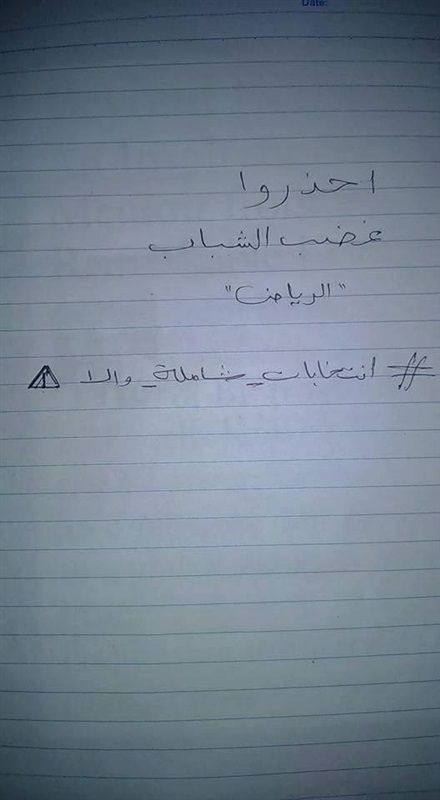 Date:
احذروا
غضب الشباب
"الرياض"
# انتخابات_شاملة_والا ⚠